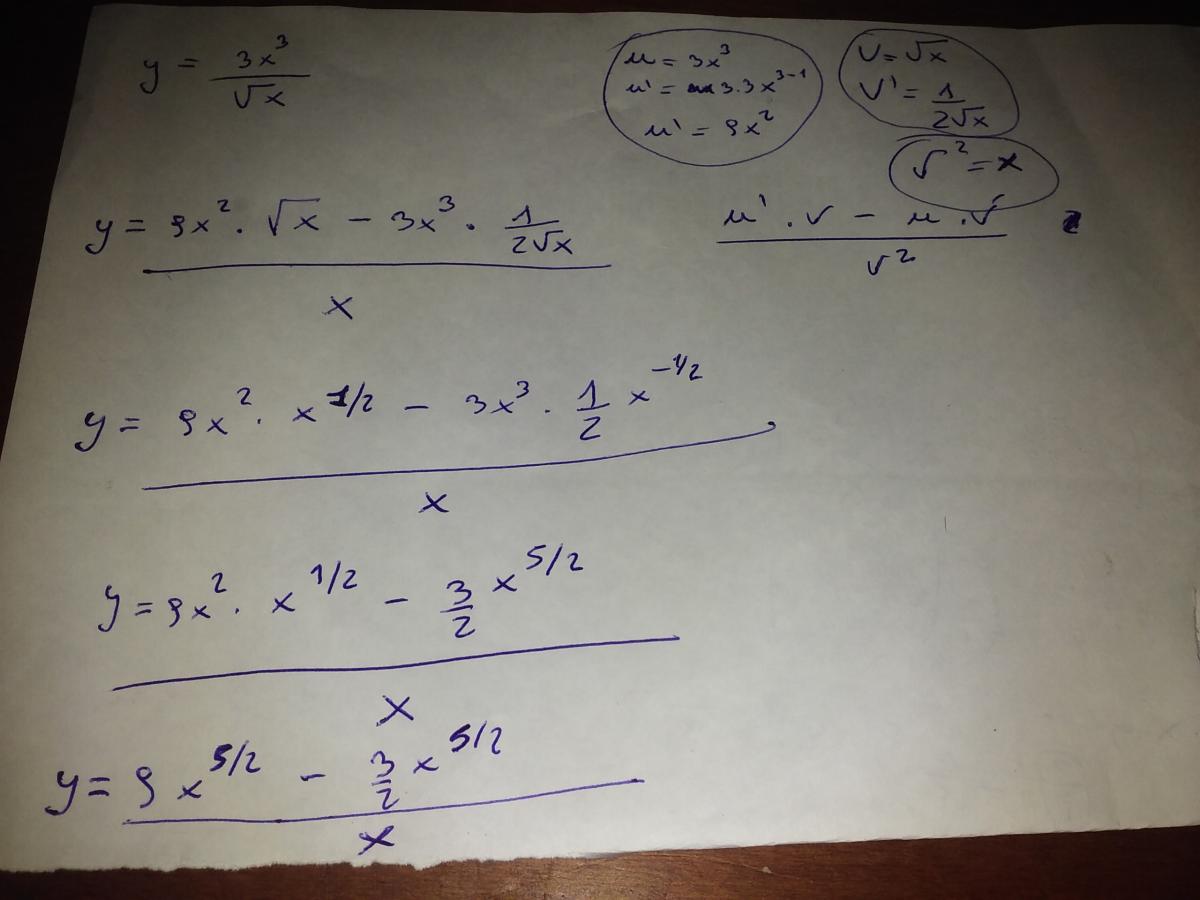 y = 3x³/√x
u = 3x³
u' = 3.3x³⁻¹
u' = 9x²
v = √x
v' = 1/2√x
v² = x
y = 9x² . √x - 3x³ . 1/2√x
x
u' . v - u . v'
v²
y = 9x² . x^1/2 - 3x³ . 1/2 x^-1/2
x
y = 9x² . x^1/2 - 3/2 x^5/2
x
y = 9x^5/2 - 3/2 x^5/2
x